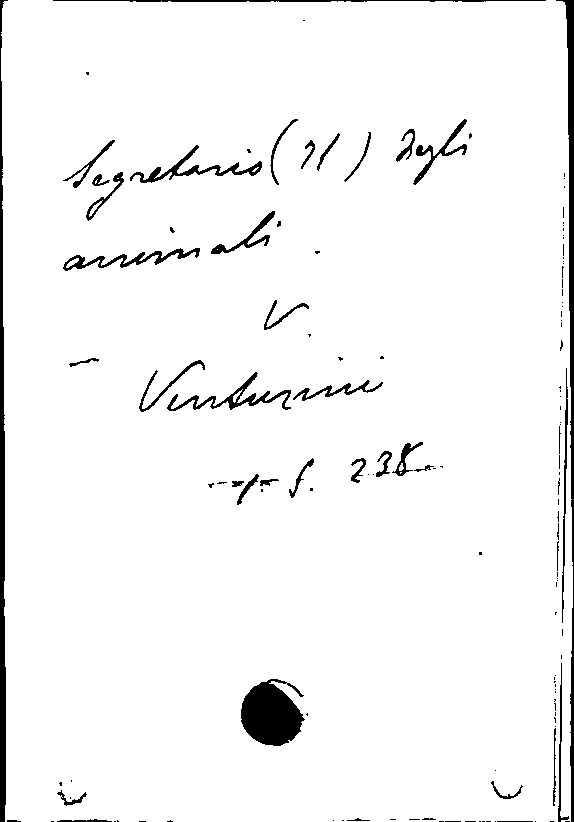 Segretario (Il) degli
animali.
V.
— Venturini
f. 238